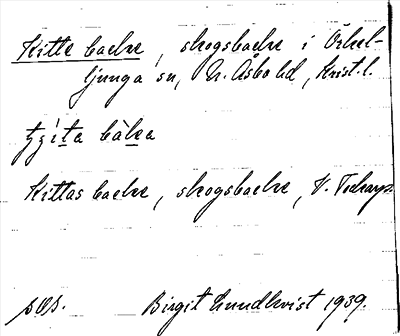 Kitte backe, skogsbacke i Örkel-
ljunga sn, N. Åsbo hd, Krist. l.
Kittas backe, skogsbacke, V.
sös. Birgit Lundkvist 1939.